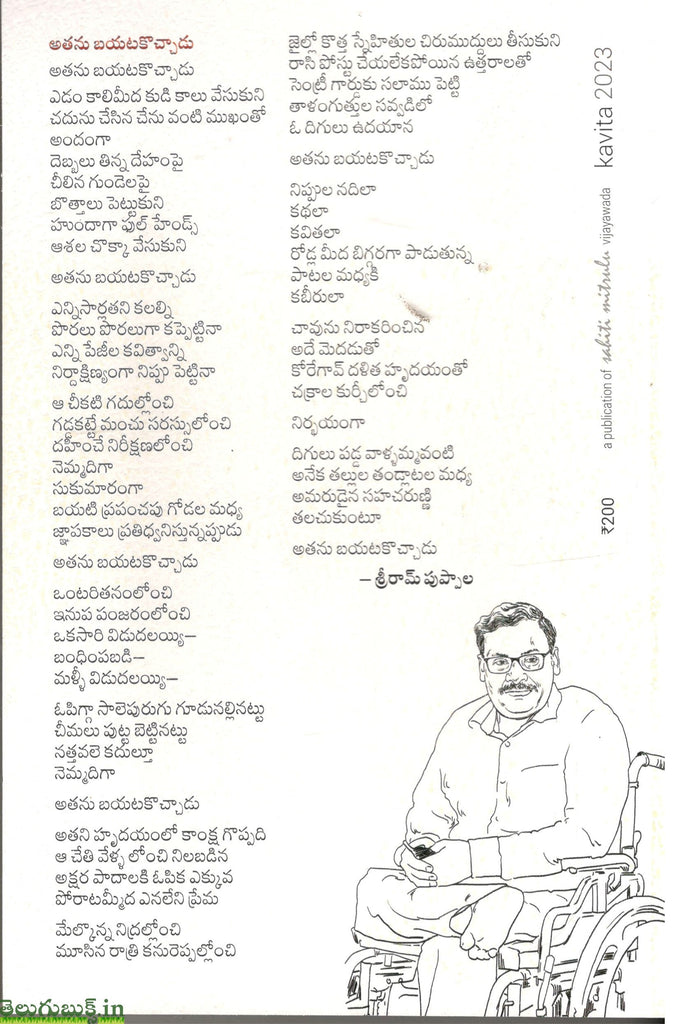 అతను బయటకొచ్చాడు
అతను బయటకొచ్చాడు
ఎడం కాలిమీద కుడి కాలు వేసుకుని
చదును చేసిన చేను వంటి ముఖంతో
అందంగా
దెబ్బలు తిన్న దేహంపై
చీలిన గుండెలపై
బొత్తాలు పెట్టుకుని
హుందాగా ఫుల్ హేండ్స్
ఆశల చొక్కా వేసుకుని
అతను బయటకొచ్చాడు
ఎన్నిసార్లతని కలల్ని
పొరలు పొరలుగా కప్పెట్టినా
ఎన్ని పేజీల కవిత్వాన్ని
నిర్దాక్షిణ్యంగా నిప్పు పెట్టినా
ఆ చీకటి గదుల్లోంచి
గడ్డకట్టే మంచు సరస్సులోంచి
దహించే నిరీక్షణలోంచి
నెమ్మదిగా
సుకుమారంగా
బయటి ప్రపంచపు గోడల మధ్య
జ్ఞాపకాలు ప్రతిధ్వనిస్తున్నప్పుడు
అతను బయటకొచ్చాడు
ఒంటరితనంలోంచి
ఇనుప పంజరంలోంచి
ఒకసారి విడుదలయ్యి–
బంధింపబడి–
మళ్ళీ విడుదలయ్యి–
ఓపిగ్గా సాలెపురుగు గూడునల్లినట్టు
చీమలు పుట్ట బెట్టినట్టు
నత్తవలె కదుల్తూ
నెమ్మదిగా
అతను బయటకొచ్చాడు
అతని హృదయంలో కాంక్ష గొప్పది
ఆ చేతి వేళ్ళ లోంచి నిలబడిన
అక్షర పాదాలకి ఓపిక ఎక్కువ
పోరాటమ్మీద ఎనలేని ప్రేమ
మేల్కొన్న నిద్రల్లోంచి
మూసిన రాత్రి కనురెప్పల్లోంచి
జైల్లో కొత్త స్నేహితుల చిరుముద్దులు తీసుకుని
రాసి పోస్టు చేయలేకపోయిన ఉత్తరాలతో
సెంట్రీ గార్డుకు సలాము పెట్టి
తాళంగుత్తుల సవ్వడిలో
ఓ దిగులు ఉదయాన
అతను బయటకొచ్చాడు
నిప్పుల నదిలా
కథలా
కవితలా
రోడ్ల మీద బిగ్గరగా పాడుతున్న
పాటల మధ్యకి
కబీరులా
చావును నిరాకరించిన
అదే మెదడుతో
కోరేగావ్ దళిత హృదయంతో
చక్రాల కుర్చీలోంచి
నిర్భయంగా
దిగులు పడ్డ వాళ్ళమ్మవంటి
అనేక తల్లుల తండ్లాటల మధ్య
అమరుడైన సహచరుణ్ణి
తలచుకుంటూ
అతను బయటకొచ్చాడు
– శ్రీరామ్ పుప్పాల
₹200
a publication of sahiti mitrulu vijayawada kavita 2023
తెలుగుబుక్స్.in